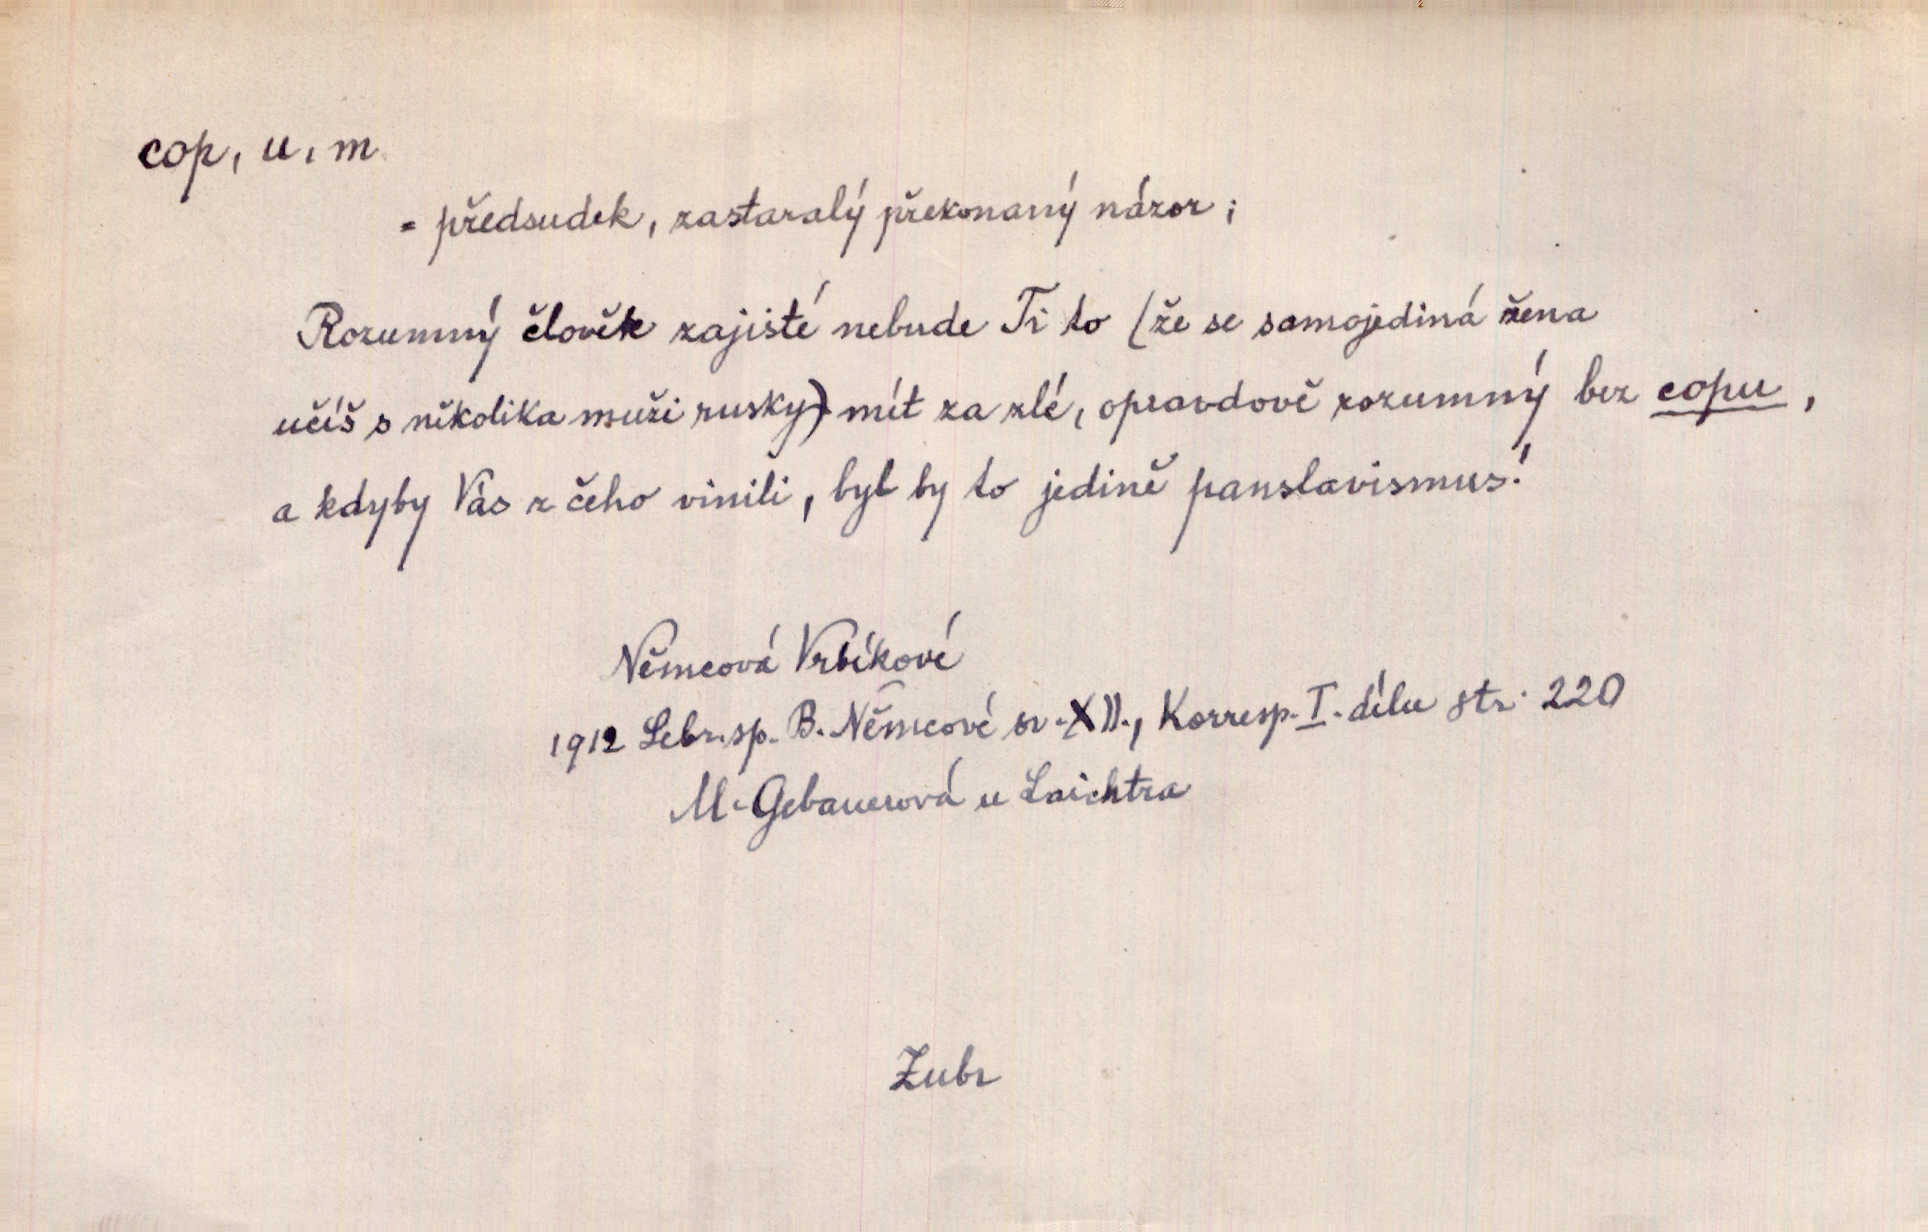 cop, u, m.
= předsudek, zastaralý překonaný názor;
Rozumný člověk zajisté nebude Ti to (že se samojediná žena
učíš s několika muži rusky) mít za zlé, opravdově rozumný bez copu,
a kdyby Vás z čeho vinili, byl by to jedině panslavismus!
Němcová Vrbíkové
1912 Sebr. sp. B. Němcové sv. XII., Korresp. I. dílu str. 220
M. Gebauerová u Laichtra
Zubr